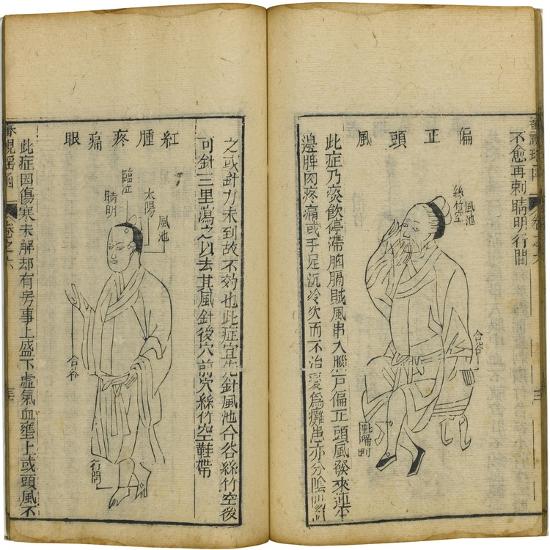 不愈再刺睛明行間
偏正頭風
風池
絲竹空
合谷
此症乃痰飲停滯胸膈賊風串入腦戶偏正頭風發來連半
邊脾肉疼痛或手足沉冷久而不治變為癱患亦分陰陽針
之或針力未到故不効也此症宜先針風池合谷絲竹空後
可針三里瀉之以去其風針後穴前穴絲竹空鞋帶
紅腫疼痛眼
風池
太陽
臨泣
睛明
合谷
行間
此症因傷寒未解却有房事上盛下虛氣血壅上或頭風不
審視瑤函 卷之六